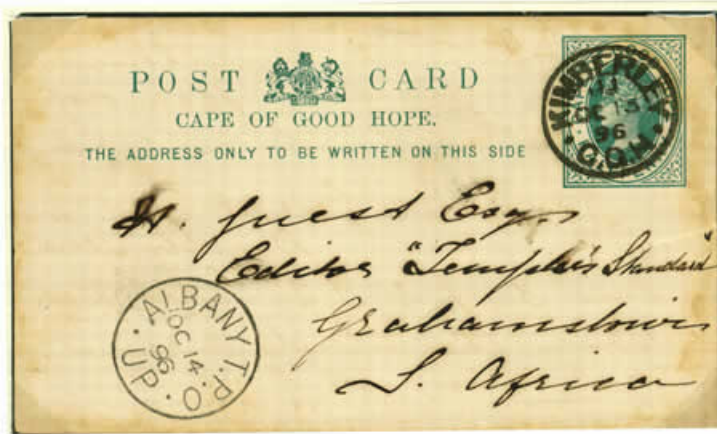 POST CARD
CAPE OF GOOD HOPE.
THE ADDRESS ONLY TO BE WRITTEN ON THIS SIDE
KIMBERLEY
11
OC 15
96
C.G.H.
H. Guest Esq.
Editor "Templar's Standard"
Grahamstown
S. Africa
ALBANY T.P.O.
OC 14
96
UP